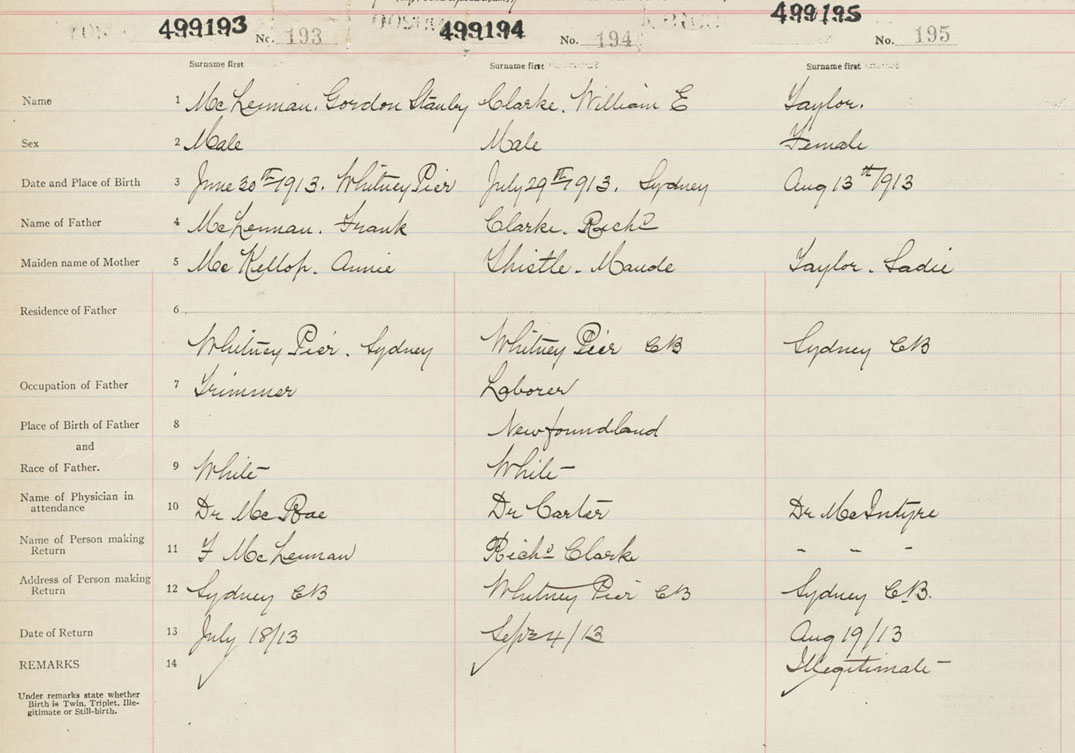 499193 No. 193 499194 No. 194 499195 No. 195
Surname first Surname first Surname first
Name 1 McLennan. Gordon Stanley Clarke. William E Taylor.
Sex 2 Male Male Female
Date and Place of Birth 3 June 20th 1913. Whitney Pier July 29th 1913. Sydney Aug 13th 1913
Name of Father 4 McLennan. Frank Clarke. Richd
Maiden name of Mother 5 McKellop. Annie Thistle. Maude Taylor. Sadie
Residence of Father 6
Whitney Pier. Sydney Whitney Pier CB Sydney CB
Occupation of Father 7 Trimmer Laborer
Place of Birth of Father 8 Newfoundland
and
Race of Father. 9 White White
Name of Physician in
attendance 10 Dr McRae Dr Carter Dr McIntyre
Name of Person making
Return 11 F McLennan Richd Clarke - - -
Address of Person making
Return 12 Sydney CB Whitney Pier CB Sydney C.B.
Date of Return 13 July 18/13 Sept 4/13 Aug 19/13
REMARKS 14 Illegitimate
Under remarks state whether
Birth is Twin, Triplet, Ille-
gitimate or Still-birth.